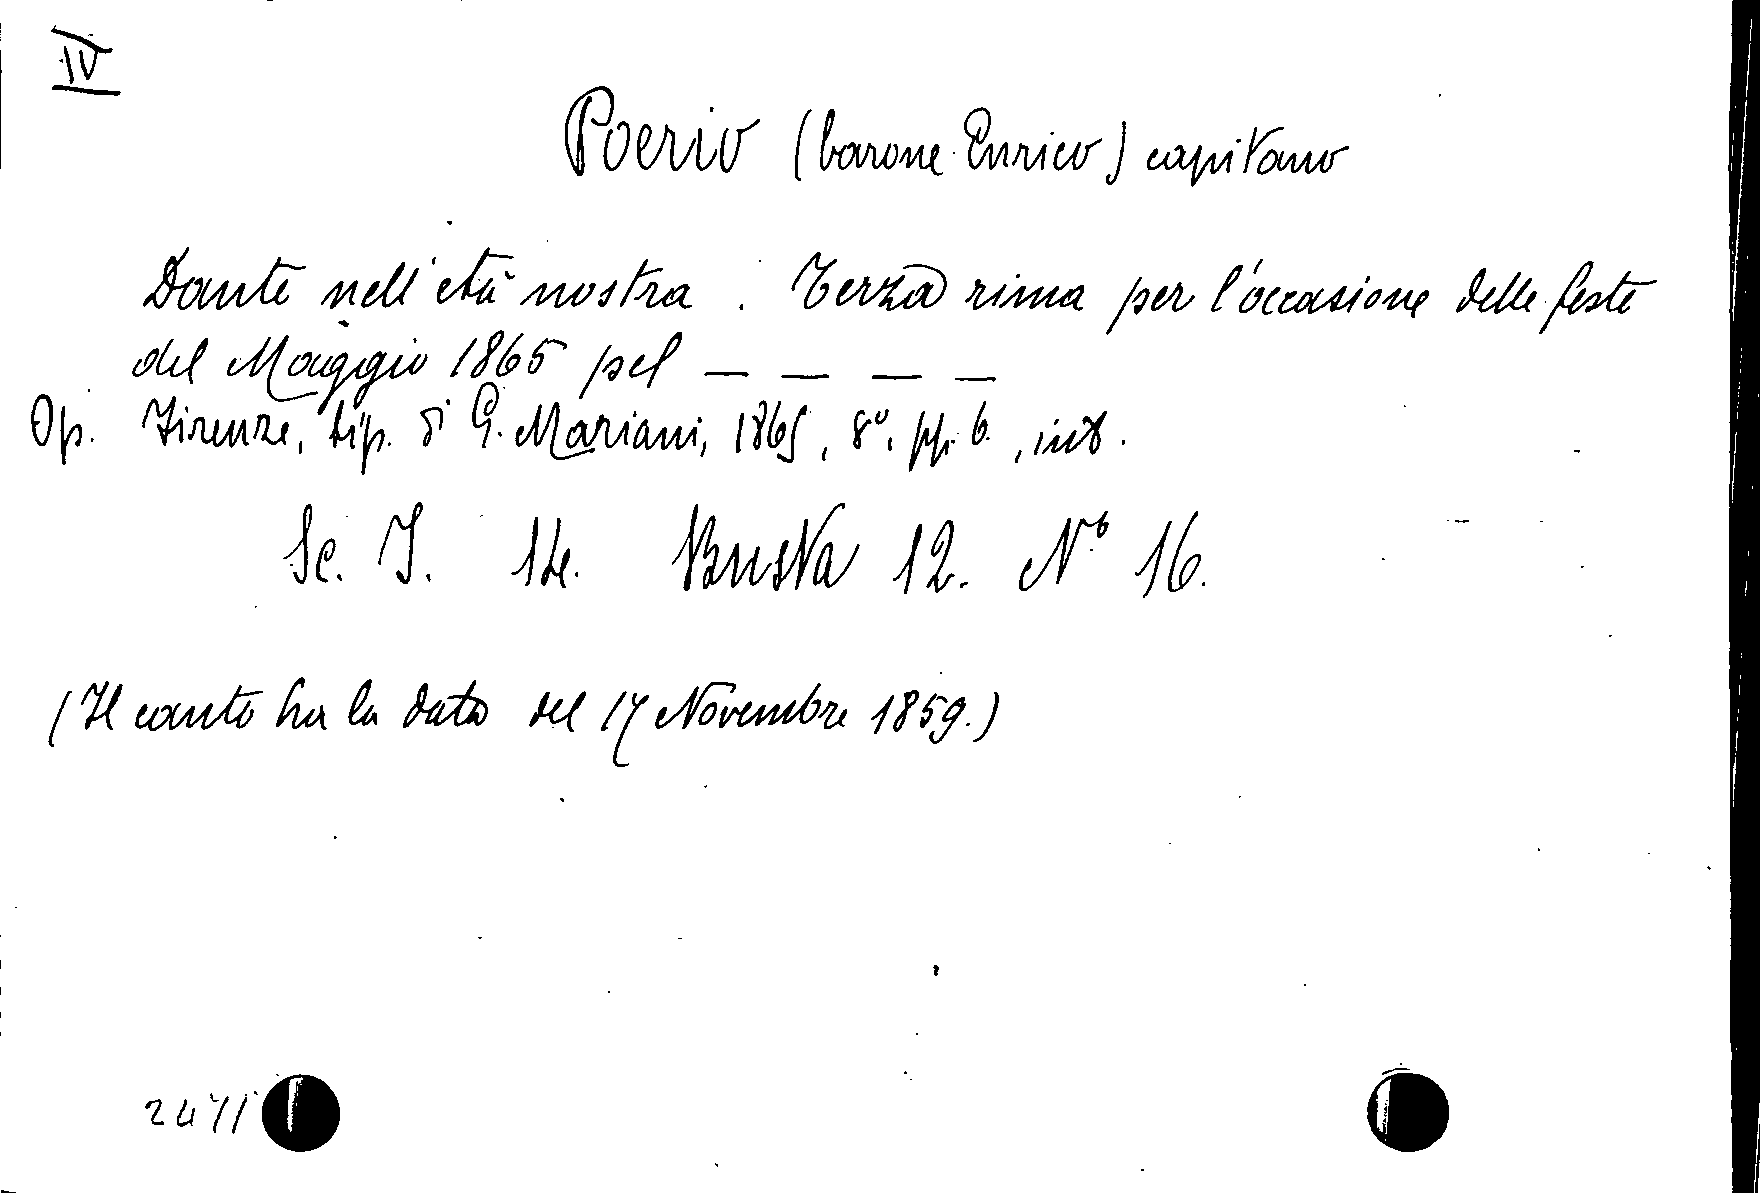 IV
Poerio (barone Enrico) capitano
Dante nell'età nostra. Terza rima per l'occasione delle feste
del Maggio 1865 pel — — — —
Op. Firenze, tip. di G. Mariani, 1865, 8º, pp. 6., int.
Sc. I. 14. Busta 12. Nº 16.
(Il canto ha la data del 17 Novembre 1859.)
2471